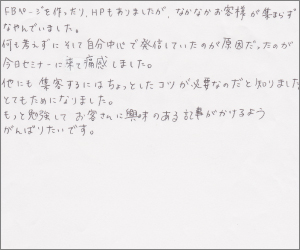 FBページを作ったり、HPもありましたが、なかなかお客様が集まらず
なやんでいました。
何も考えずにそして自分中心で発信していたのが原因だったのが
今日セミナーに来て痛感しました。
他にも集客するにはちょっとしたコツが必要なのだと知りました
とてもためになりました。
もっと勉強してお客さんに興味のある記事がかけるよう
がんばりたいです。